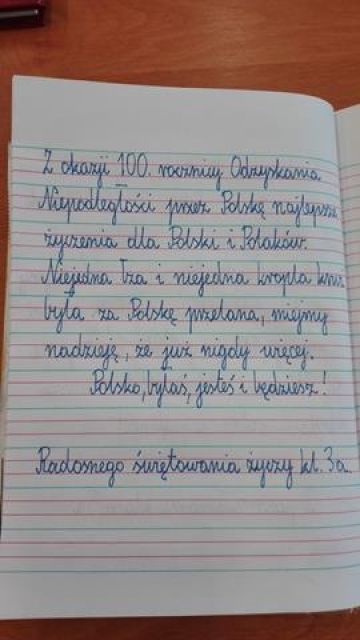 Z okazji 100. rocznicy Odzyskania
Niepodległości przez Polskę najlepsze
życzenia dla Polski i Polaków.
Niejedna łza i niejedna kropla krwi
była za Polskę przelana, miejmy
nadzieję, że już nigdy więcej.
Polsko, byłaś, jesteś i będziesz!
Radosnego świętowania życzy kl. 3a.